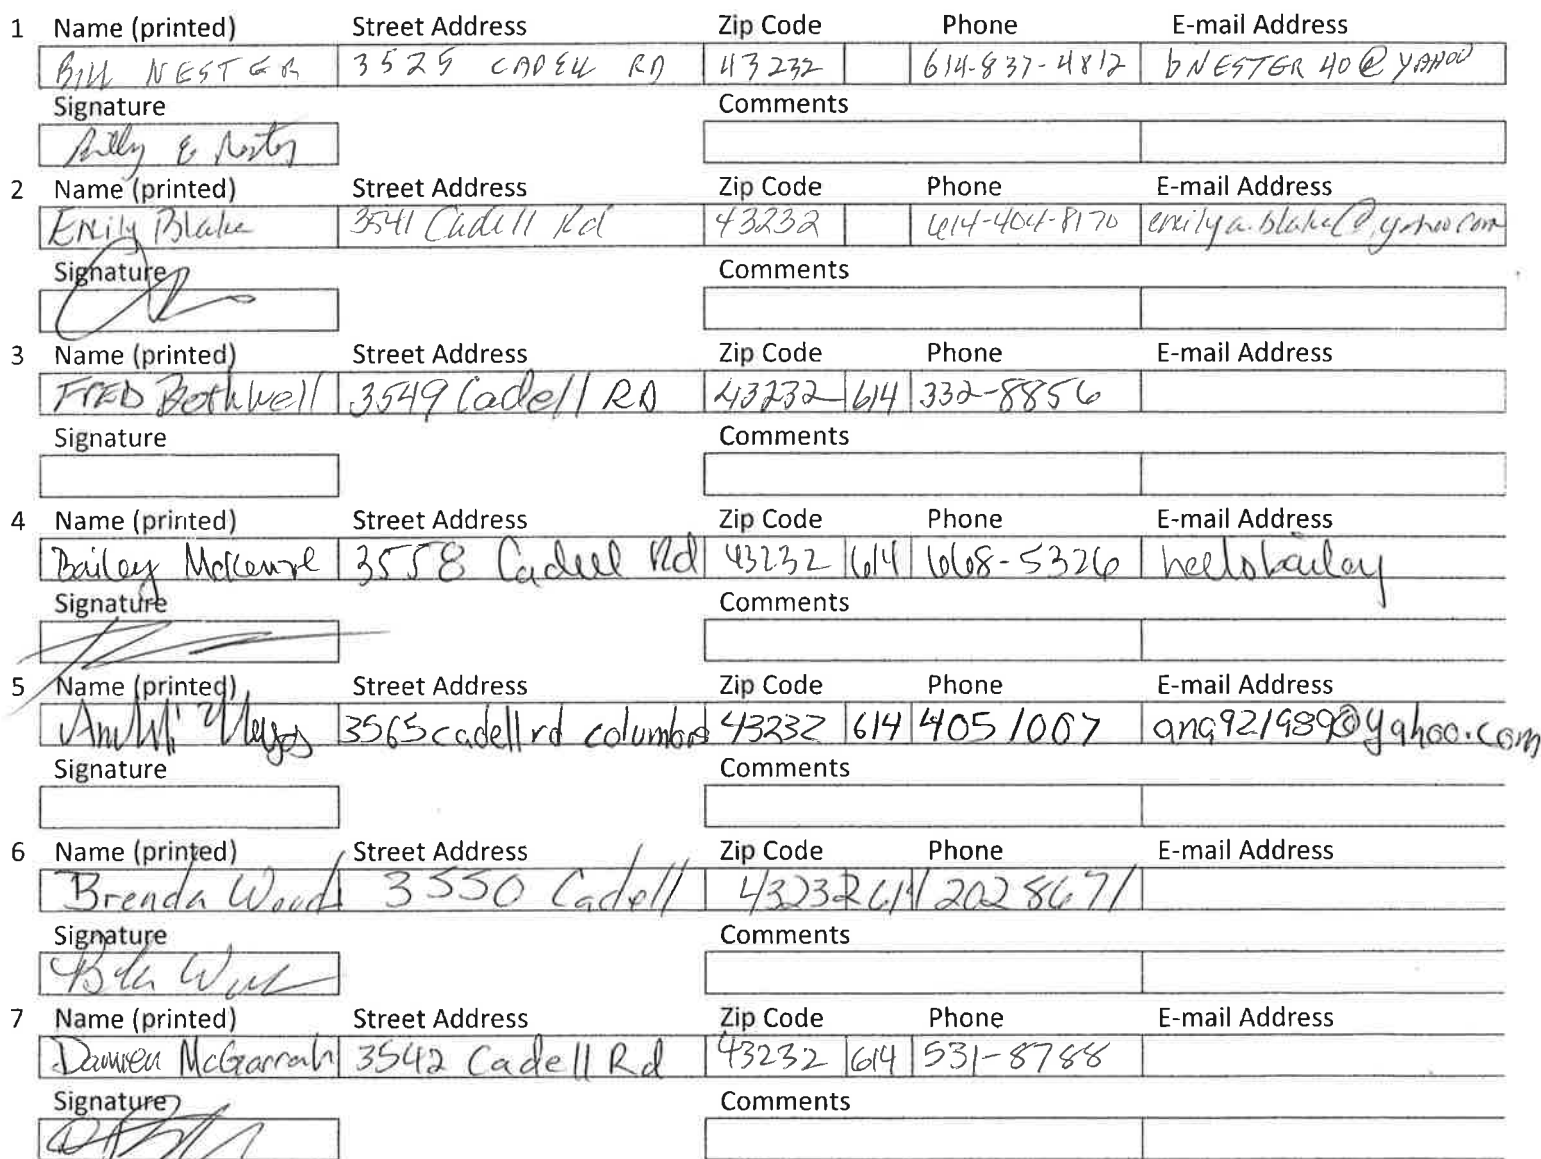 1 Name (printed) Street Address Zip Code Phone E-mail Address
Bill NESTER 3525 CADELL RD 43232 614-837-4812 bNESTER 40@YAHOO
Signature Comments
Billy E Nester
2 Name (printed) Street Address Zip Code Phone E-mail Address
Emily Blake 3541 Cadell Rd 43232 614-404-8170 emilya.blake@yahoo.com
Signature Comments
3 Name (printed) Street Address Zip Code Phone E-mail Address
FRED Bothwell 3549 Cadell RD 43232 614 332-8856
Signature Comments
4 Name (printed) Street Address Zip Code Phone E-mail Address
Bailey McKenzie 3558 Cadell Rd 43232 614 668-5326 hellobailey
Signature Comments
5 Name (printed) Street Address Zip Code Phone E-mail Address
3565 cadell rd columbus 43232 614 405 1007 ana921989@yahoo.com
Signature Comments
6 Name (printed) Street Address Zip Code Phone E-mail Address
Brenda Woods 3550 Cadell 43232 614 202 8671
Signature Comments
7 Name (printed) Street Address Zip Code Phone E-mail Address
Damien McGarrah 3542 Cadell Rd 43232 614 531-8788
Signature Comments